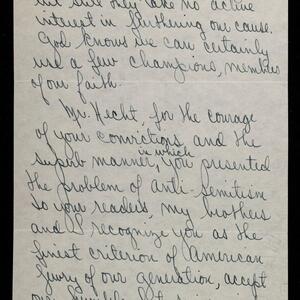 but still only take no active
interest in furthering our cause.
God knows we can certainly
use a few champions, members
of our faith.
Mr. Hecht, for the courage
of your convictions and the
superb manner, in which you presented
the problem of anti-semitism
to your readers, my brothers
and I recognize you as the
finest criterion of American
Jewry of our generation, accept
our humble